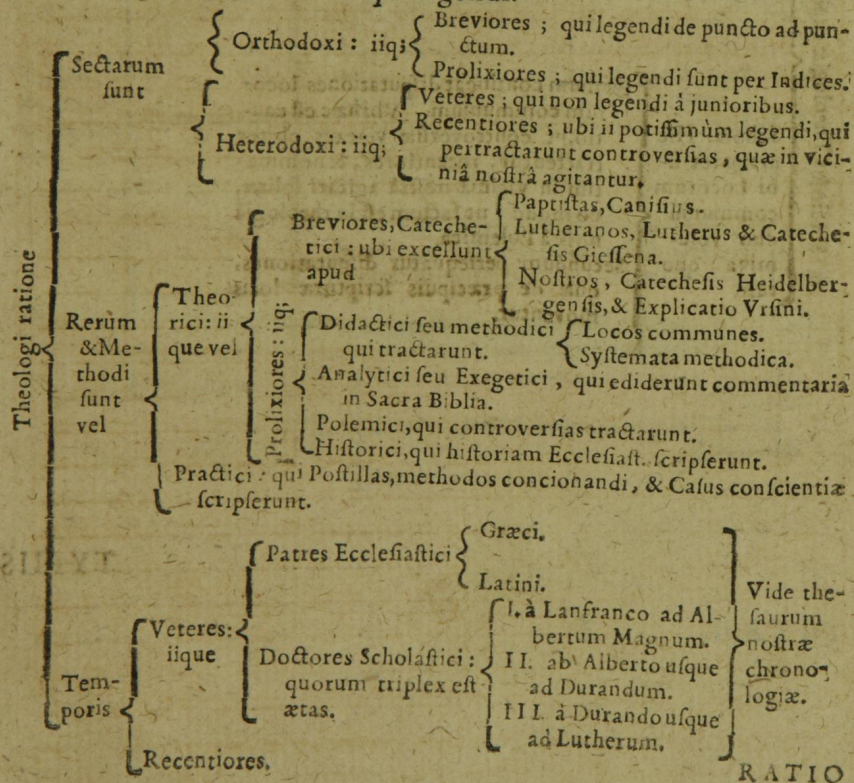 Theologi ratione
Sectarum
sunt
Orthodoxi : iiq;
Breviores ; qui legendi de puncto ad pun-
ctum.
Prolixiores ; qui legendi sunt per Indices.
Heterodoxi : iiq;
Veteres ; qui non legendi á junioribus.
Recentiores ; ubi ii potissimùm legendi, qui
pertractarunt controversias, quæ in vici-
niâ nostrâ agitantur.
Rerum
& Me-
thodi
sunt
vel
Theo-
rici: ii
que vel
Breviores, Cateche-
tici : ubi excellunt
apud
Papistas, Canisius.
Lutheranos, Lutherus & Cateche-
sis Giessena.
Nostros, Catechesis Heidelber-
gensis, & Explicatio Ursini.
Prolixiores : iiq;
Didactici seu methodici
qui tractarunt.
Locos communes.
Systemata methodica.
Analytici seu Exegetici, qui ediderunt commentaria
in Sacra Biblia.
Polemici, qui controversias tractarunt.
Historici, qui historiam Ecclesiast. scripserunt.
Practici : qui Postillas, methodos concionandi, & Casus conscientiæ
scripserunt.
Tem-
poris
Veteres:
iique
Patres Ecclesiastici
Græci.
Latini.
Doctores Scholastici :
quorum triplex est
ætas.
I. à Lanfranco ad Al-
bertum Magnum.
II. ab Alberto usque
ad Durandum.
III. à Durando usque
ad Lutherum.
Vide the-
saurum
nostræ
chrono-
logiæ.
Recentiores.
RATIO